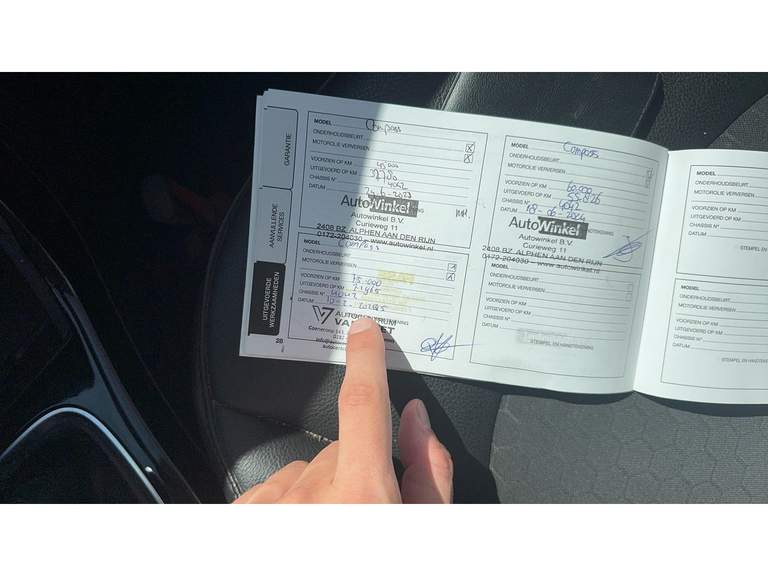 GARANTIE
AANVULLENDE
SERVICES
UITGEVOERDE
WERKZAAMHEDEN
28
MODEL Compass
ONDERHOUDSBEURT
MOTOROLIE VERVERSEN
VOORZIEN OP KM 45.000
UITGEVOERD OP KM
CHASSIS N° 4042
DATUM
AutoWinkel
Autowinkel B.V.
Curieweg 11
2408 BZ ALPHEN AAN DEN RIJN
0172-204030 – www.autowinkel.nl
MODEL Compass
ONDERHOUDSBEURT
MOTOROLIE VERVERSEN
VOORZIEN OP KM 75.000
UITGEVOERD OP KM
CHASSIS N° 4042
DATUM
AUTOCENTRUM
MODEL Compass
ONDERHOUDSBEURT
MOTOROLIE VERVERSEN
VOORZIEN OP KM 60.000
UITGEVOERD OP KM
CHASSIS N° 4042
DATUM 18-06-2024
AutoWinkel
Autowinkel B.V.
Curieweg 11
2408 BZ ALPHEN AAN DEN RIJN
0172-204030 – www.autowinkel.nl
MODEL
ONDERHOUDSBEURT
MOTOROLIE VERVERSEN
VOORZIEN OP KM
UITGEVOERD OP KM
CHASSIS N°
DATUM
STEMPEL EN HANDTEKENING
MODEL
ONDERHOUDSBEURT
MOTOROLIE VERVERSEN
VOORZIEN OP KM
UITGEVOERD OP KM
CHASSIS N°
DATUM
STEMPEL EN
MODEL
ONDERHOUDSBEURT
MOTOROLIE VERVERSEN
VOORZIEN OP KM
UITGEVOERD OP KM
CHASSIS N°
DATUM
STEMPEL EN HAND